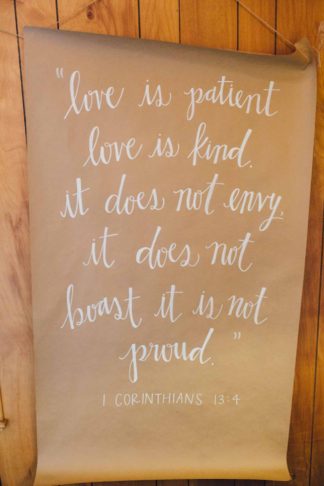 "love is patient
love is kind.
it does not envy,
it does not
boast it is not
proud."
1 CORINTHIANS 13:4